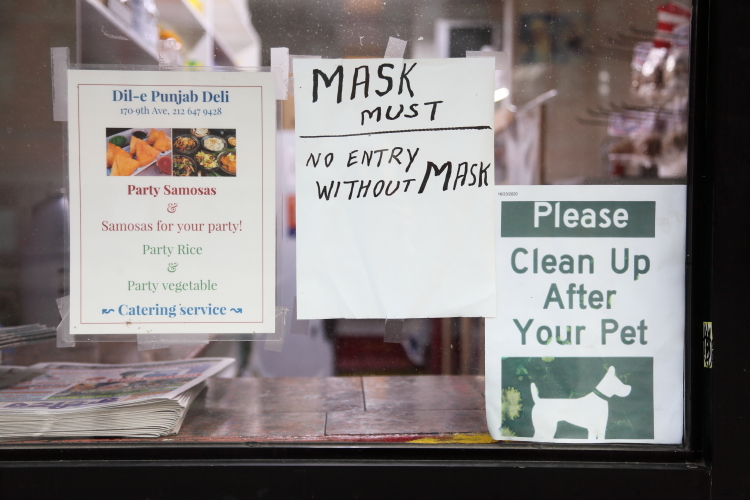 Dil-e Punjab Deli
170-9th Ave, 212 647 9428
Party Samosas
&
Samosas for your party!
Party Rice
&
Party vegetable
Catering service
MASK
MUST
NO ENTRY
WITHOUT MASK
10/23/2020
Please
Clean Up
After
Your Pet